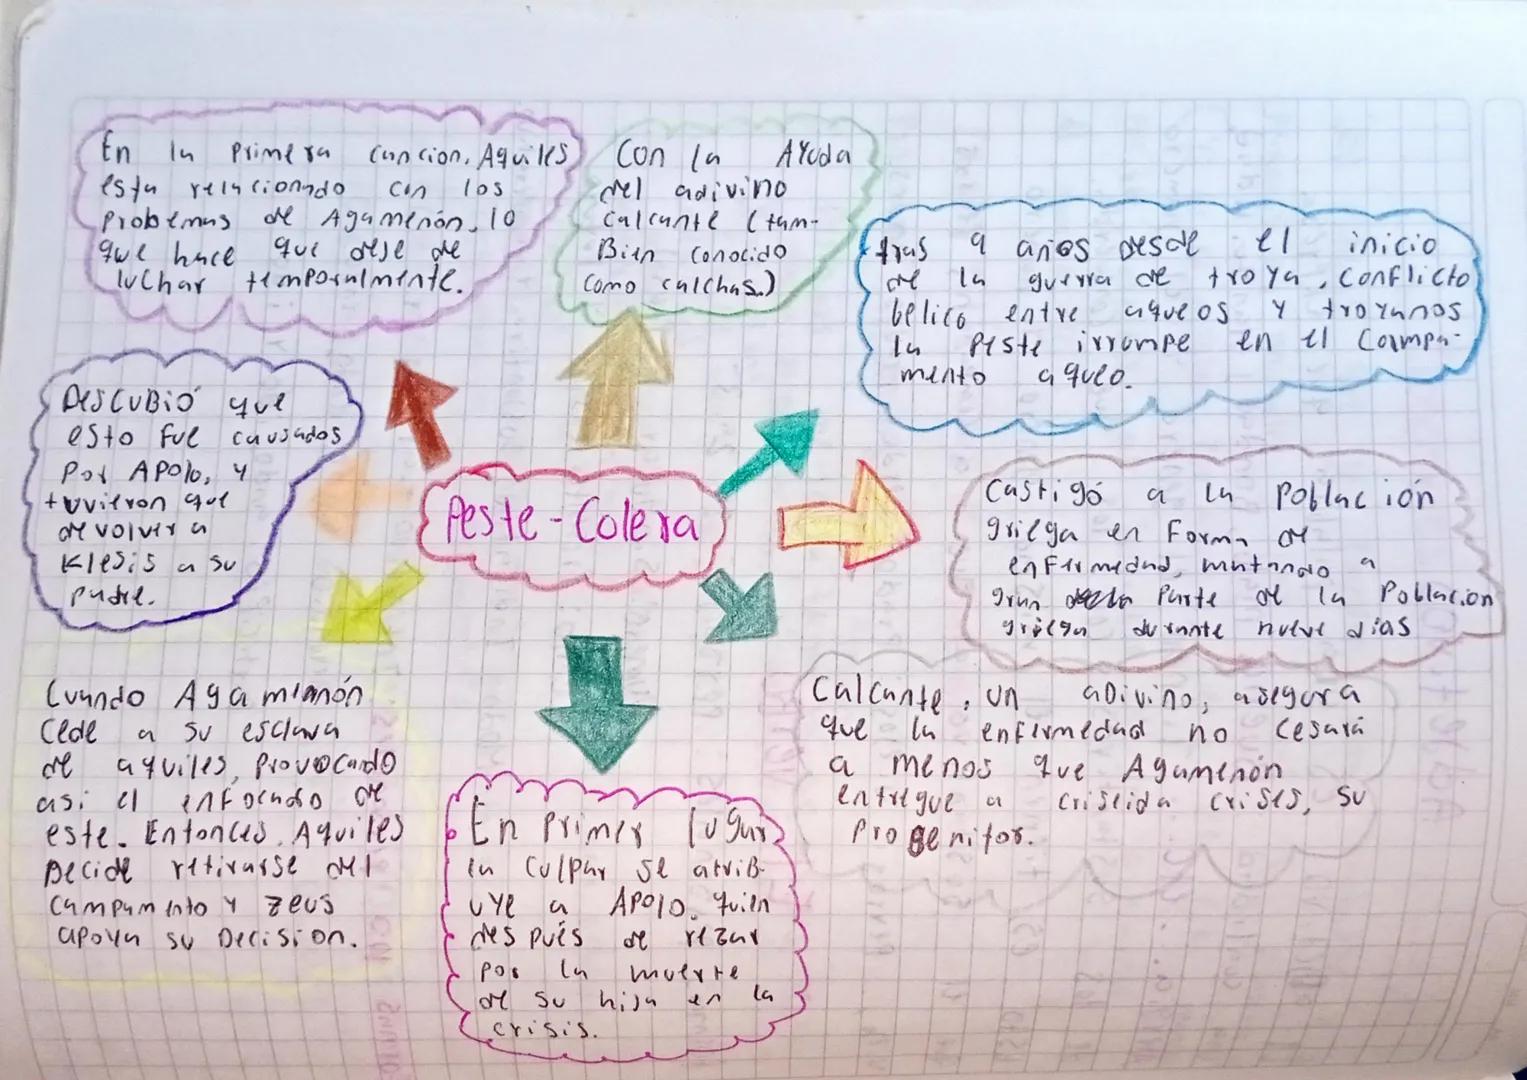 En la primera cancion, Aquiles
esta relacionado con los
problemas de Agamenón, lo
que hace que deje de
luchar temporalmente.
Con la Ayuda
del adivino
calcante (tam-
Bien conocido
como calchas.)
tras 9 años Desde el inicio
de la guerra de troya, conflicto
belico entre aqueos y troyanos
la peste irrumpe en el Campa-
mento aqueo.
Descubió que
esto fue causados
por Apolo, y
tuvieron que
devolver a
Klesis a su
padre.
Peste-Colera
Castigó a la población
griega en Forma de
enfermedad, matando a
gran parte de la Poblacion
griega durante nueve dias
Cuando Agamemnón
cede a su esclava
de aquiles, provocando
asi el enfocado de
este. Entonces, Aquiles
Decide retirarse del
campamento y zeus
apoya su Decision.
En primer lugar,
la culpar se atrib-
uye a Apolo, quien
después de rezar
por la muerte
de su hija en la
crisis.
Calcante, un aDivino, asegura
que la enfermedad no cesará
a menos que Agamenón
entregue a criseida crises, su
progenitor.